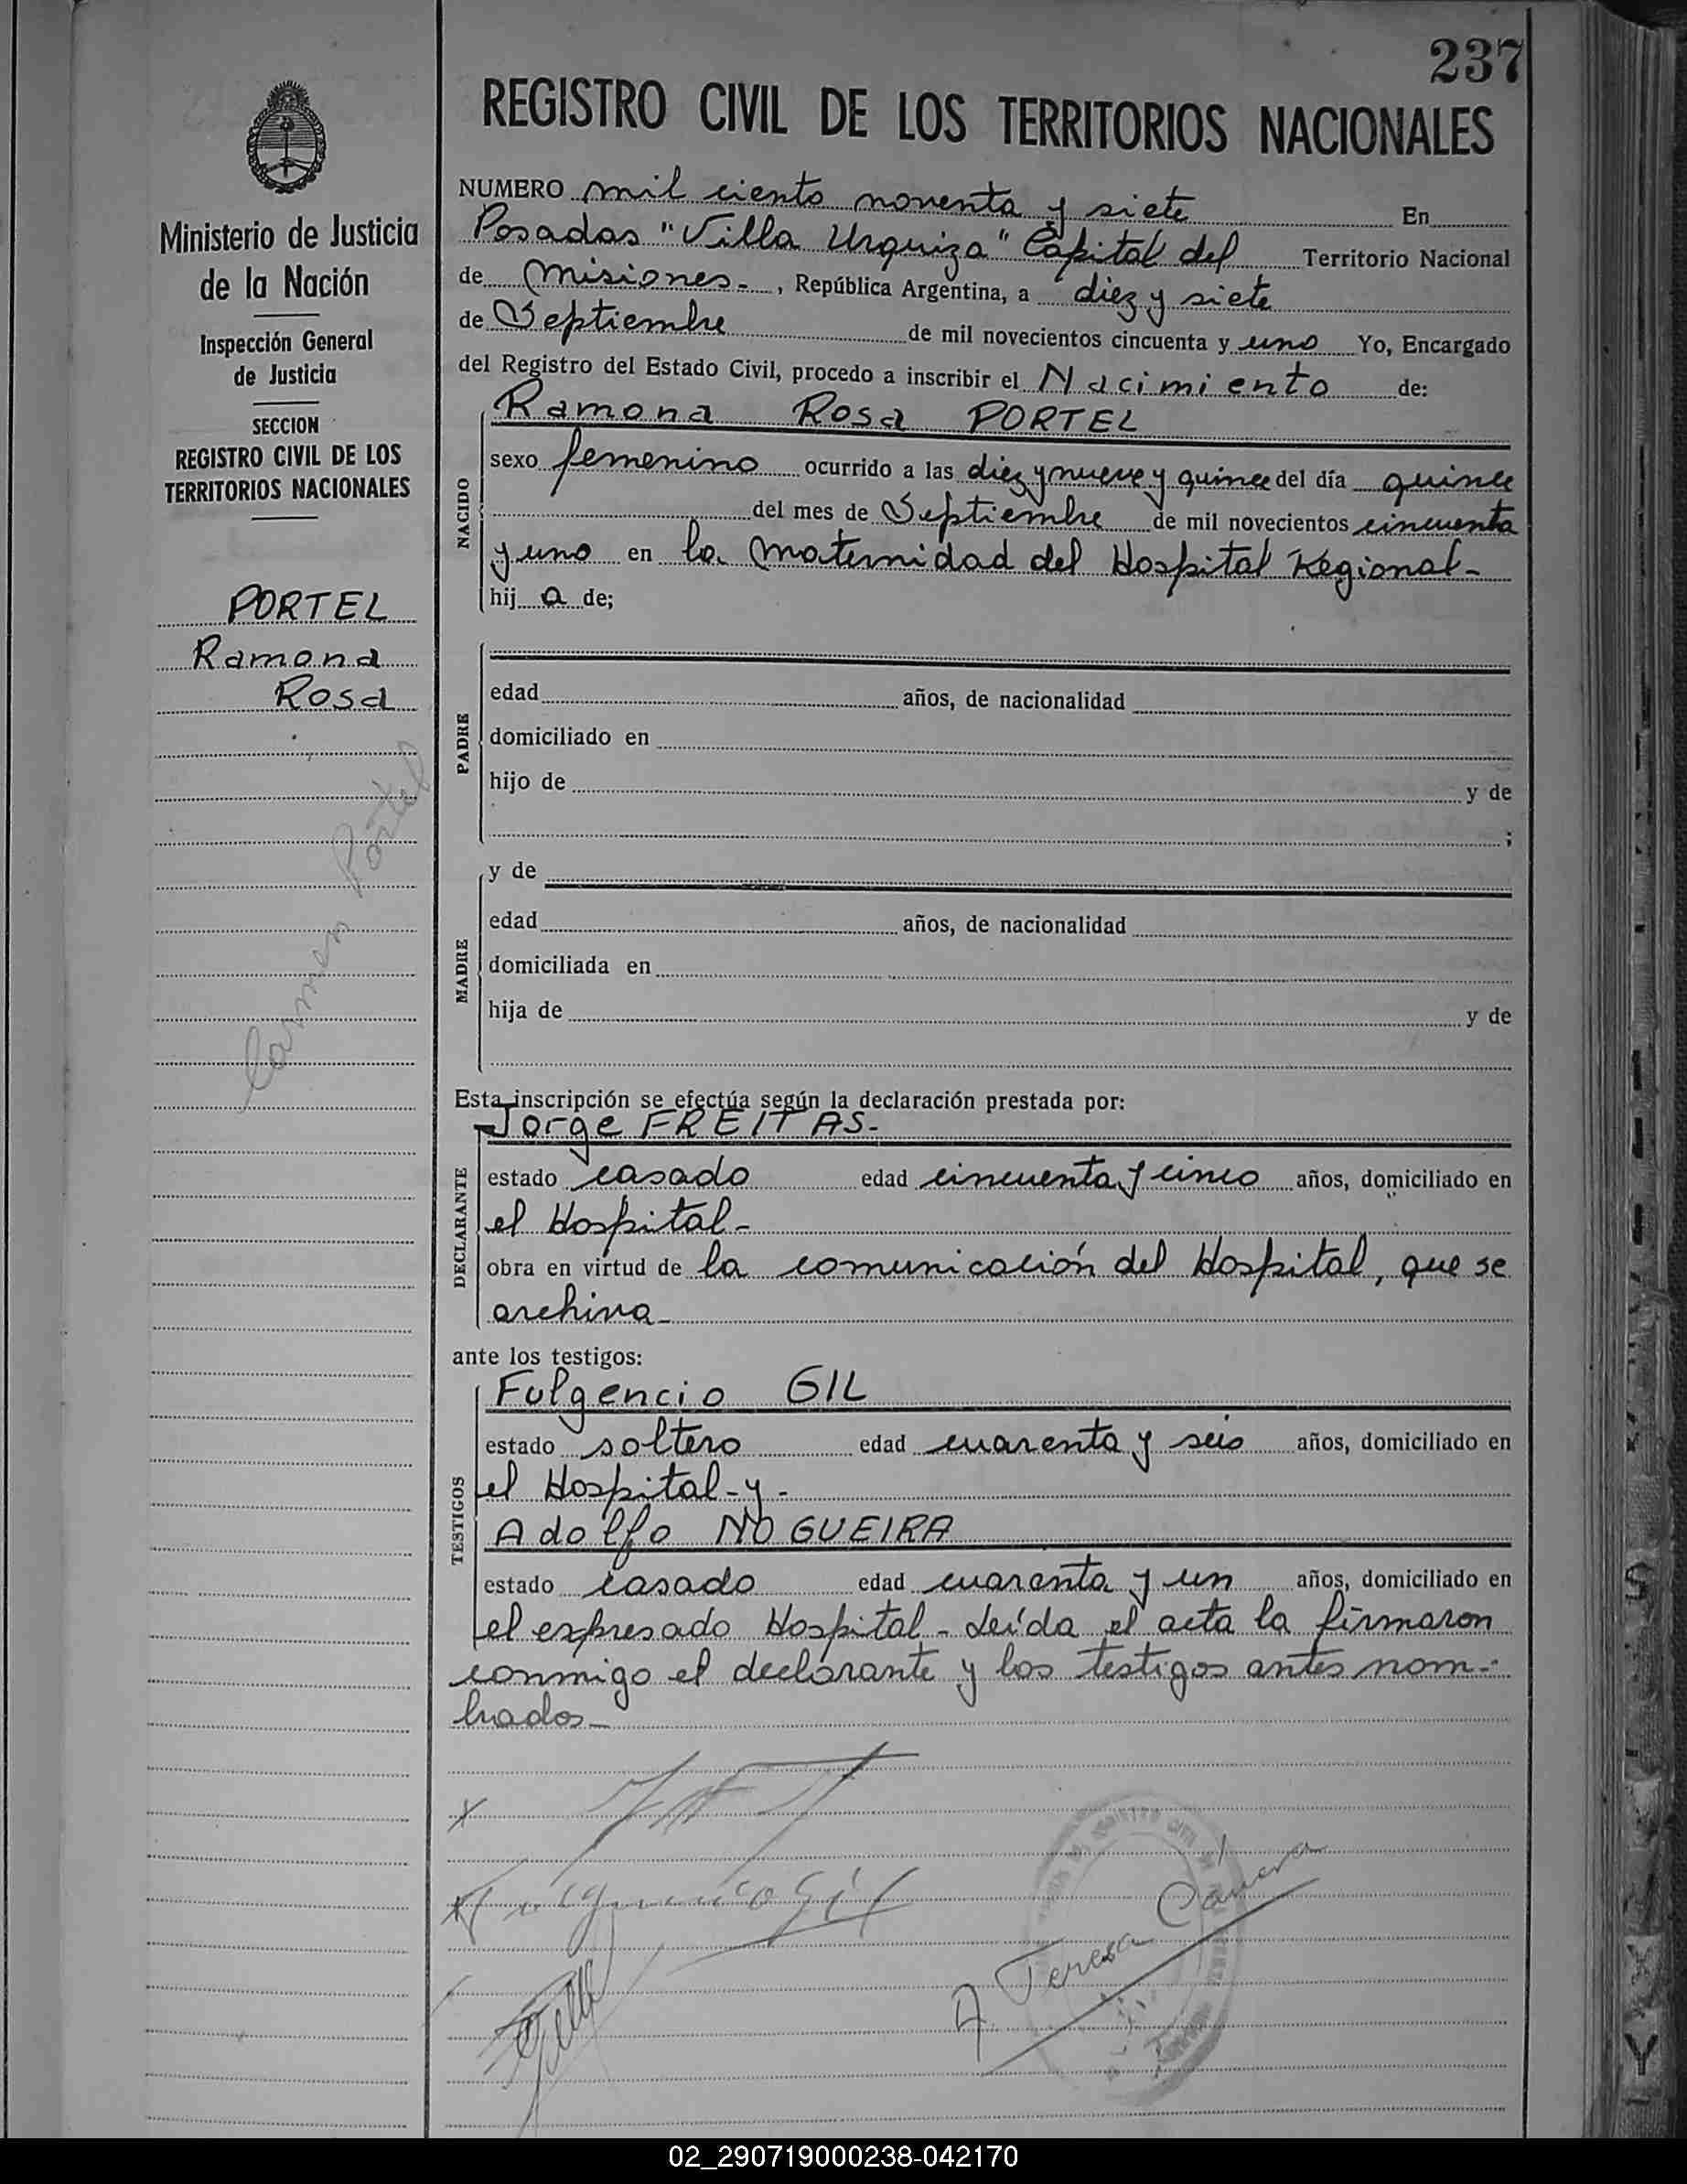 237
REGISTRO CIVIL DE LOS TERRITORIOS NACIONALES
Ministerio de Justicia
de la Nación
Inspección General
de Justicia
SECCION
REGISTRO CIVIL DE LOS
TERRITORIOS NACIONALES
PORTEL
Ramona
Rosa
Carmen Portel
NUMERO mil ciento noventa y siete En
Posadas "Villa Urquiza" Capital del Territorio Nacional
de Misiones-, República Argentina, a diez y siete
de Septiembre de mil novecientos cincuenta y uno Yo, Encargado
del Registro del Estado Civil, procedo a inscribir el Nacimiento de:
NACIDO
Ramona Rosa PORTEL
sexo femenino ocurrido a las diez y nueve y quince del día quince
del mes de Septiembre de mil novecientos cincuenta
y uno en la Maternidad del Hospital Regional-
hij a de;
PADRE
edad años, de nacionalidad
domiciliado en
hijo de y de
;
MADRE
y de
edad años, de nacionalidad
domiciliada en
hija de y de
Esta inscripción se efectúa según la declaración prestada por:
DECLARANTE
Jorge FREITAS-
estado casado edad cincuenta y cinco años, domiciliado en
el Hospital-
obra en virtud de la comunicación del Hospital, que se
archiva-
ante los testigos:
TESTIGOS
Fulgencio GIL
estado soltero edad cuarenta y seis años, domiciliado en
el Hospital-y-
Adolfo NOGUEIRA
estado casado edad cuarenta y un años, domiciliado en
el expresado Hospital- Leída el acta la firmaron
conmigo el declarante y los testigos antes nom-
brados-
x
x Fulgencio Gil
A Teresa
02_290719000238-042170